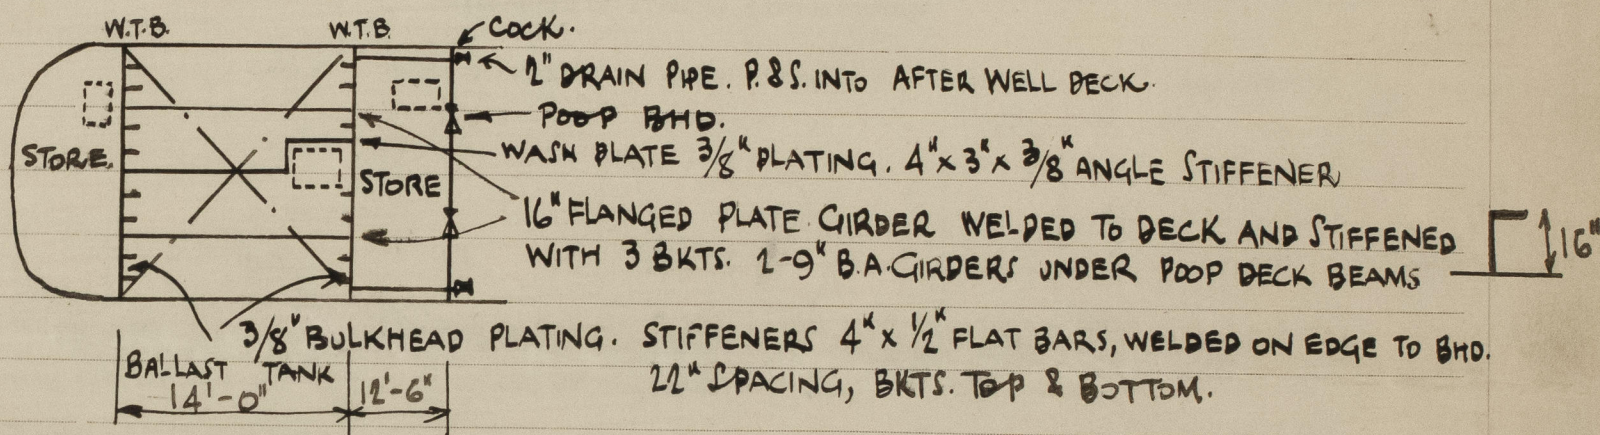 W.T.B. W.T.B. COCK.
2" DRAIN PIPE. P. & S. INTO AFTER WELL DECK.
POOP BHD.
STORE. WASH PLATE 3/8" PLATING. 4" x 3" x 3/8" ANGLE STIFFENER
STORE
16" FLANGED PLATE GIRDER WELDED TO DECK AND STIFFENED
WITH 3 BKTS. 2-9" B.A. GIRDERS UNDER POOP DECK BEAMS
16"
3/8" BULKHEAD PLATING. STIFFENERS 4" x 1/2" FLAT BARS, WELDED ON EDGE TO BHD.
22" SPACING, BKTS. TOP & BOTTOM.
BALLAST TANK
14'-0" 12'-6"